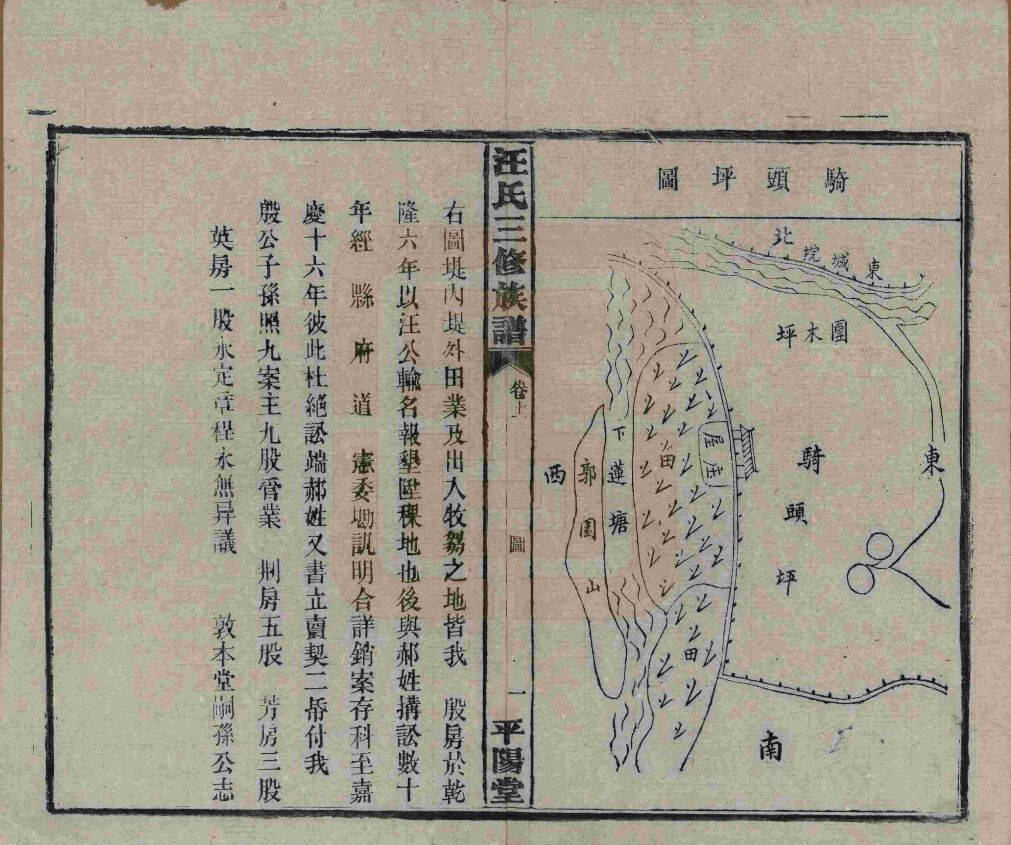 騎頭坪圖
北
東城垸
團木坪
東
騎頭坪
南
西
郭園山
下蓮塘
田
庄屋
田
汪氏三修族譜
卷上
圖
一
平陽堂
右圖堤內堤外田業及出入牧芻之地皆我 殷房於乾
隆六年以汪公輸名報墾陞稞地也後與郝姓搆訟數十
年經縣府道憲委勘訊明合詳銷案存科至嘉
慶十六年彼此杜絕訟端郝姓又書立賣契二帋付我
殷公子孫照九案主九股管業 荊房五股 芳房三股
英房一股永定章程永無异議 敦本堂嗣孫公志